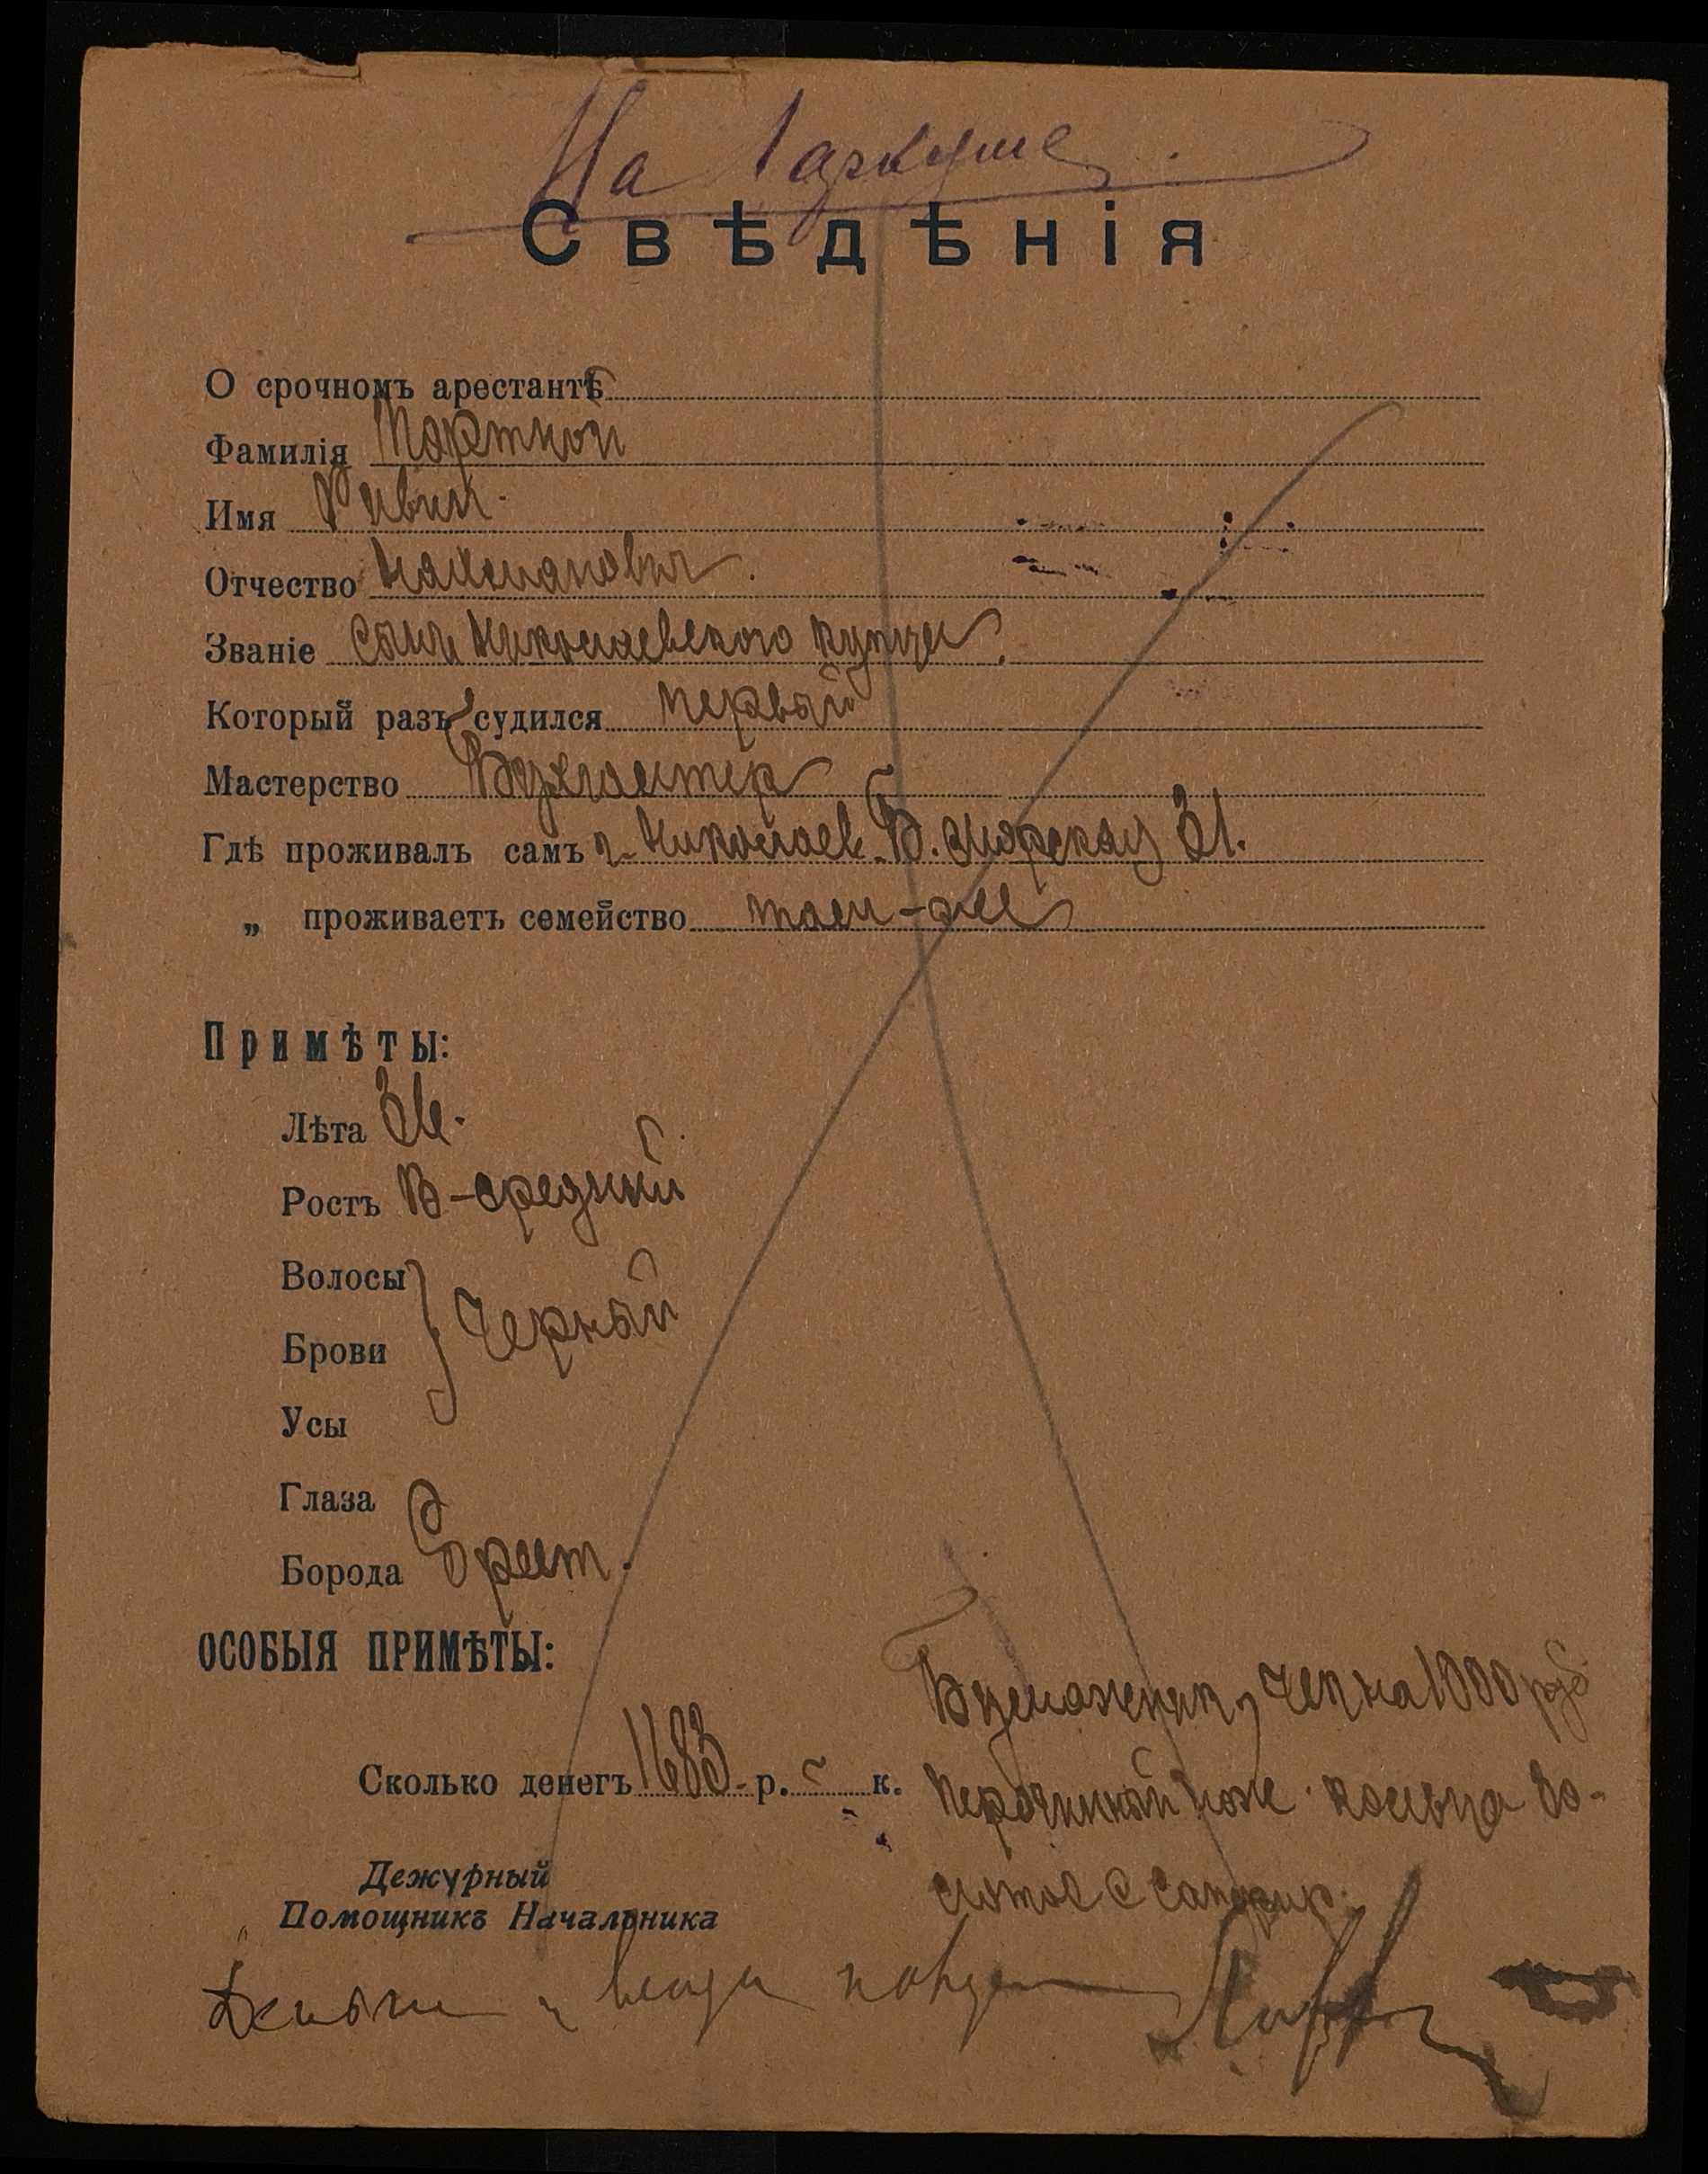 На
Свѣдѣнія
О срочномъ арестантѣ
Фамилія Портной
Имя
Отчество Нахманович.
Званіе сынъ Николаевского купца.
Который разъ судился первый
Мастерство Бухгалтер
Гдѣ проживалъ самъ г. Николаев Б. Морская 31.
„ проживаетъ семейство там-же
Примѣты:
Лѣта
Ростъ В-средний
Волосы
Брови } Черный
Усы
Глаза
Борода Бреет.
ОСОБЫЯ ПРИМѢТЫ:
Бумажник, чек на 1000 руб.
Сколько денегъ 1683 р. – к. перочинный нож кольцо зо-
лотое с
Дежурный
Помощникъ Начальника
Деньги и вещи